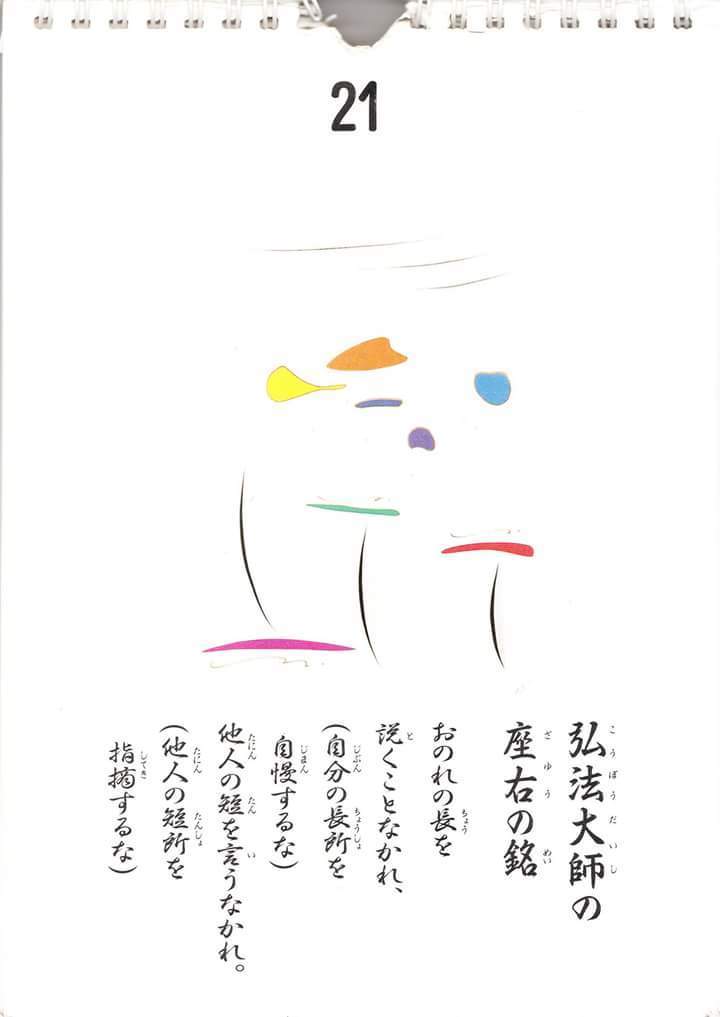 21
弘法大師の
座右の銘
おのれの長を
説くことなかれ、
(自分の長所を
自慢するな)
他人の短を言うなかれ。
(他人の短所を
指摘するな)